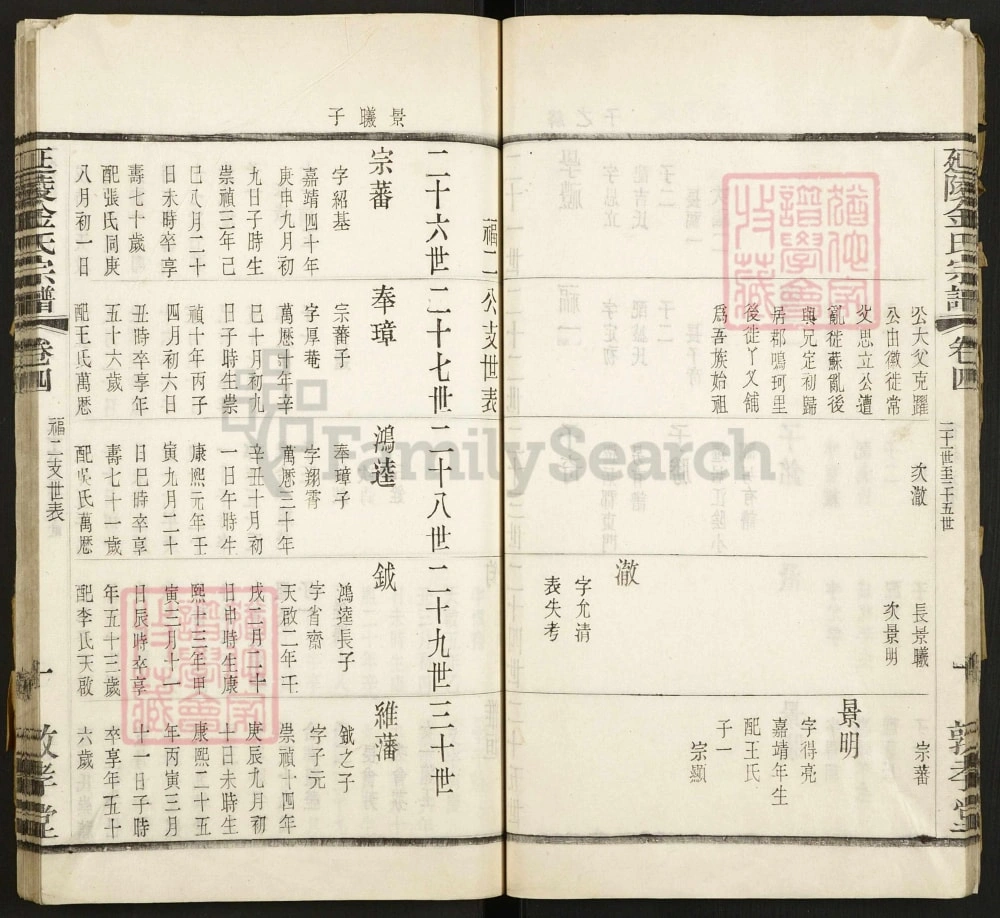 延陵金氏宗譜
卷四
二十世至二十五世
一
敦孝堂
公大父克躍
公由徽徙常
父思立公遭
亂徙蘇亂後
與兄定初歸
居郡鳴珂里
後徙丫叉舖
爲吾族始祖
次澈
澈
字允清
表失考
長景曦
次景明
宗蕃
景明
字得亮
嘉靖年生
配王氏
子一
宗顯
福二公支世表
二十六世
二十七世
二十八世
二十九世
三十世
景曦子
宗蕃
字紹基
嘉靖四十年
庚申九月初
九日子時生
崇禎三年己
巳八月二十
日未時卒享
壽七十歲
配張氏同庚
八月初一日
奉璋
宗蕃子
字厚菴
萬厯十年辛
巳十月初九
日子時生崇
禎十年丙子
四月初六日
丑時卒享年
五十六歲
配王氏萬厯
鴻逵
奉璋子
字翔霄
萬厯三十年
辛丑十月初
一日午時生
康熙元年壬
寅九月二十
日巳時卒享
壽七十一歲
配吳氏萬厯
鉞
鴻逵長子
字省齋
天啟二年壬
戌二月二十
日申時生康
熙十三年甲
寅三月十一
日辰時卒享
年五十三歲
配李氏天啟
維藩
鉞之子
字子元
崇禎十四年
庚辰九月初
十日未時生
康熙二十五
年丙寅三月
十一日子時
卒享年五十
六歲
延陵金氏宗譜
卷四
福二支世表
一
敦孝堂
FamilySearch